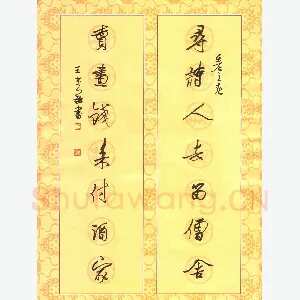 尋詩人去留僧舍
賣畫錢來付酒家
Shufawang.CN